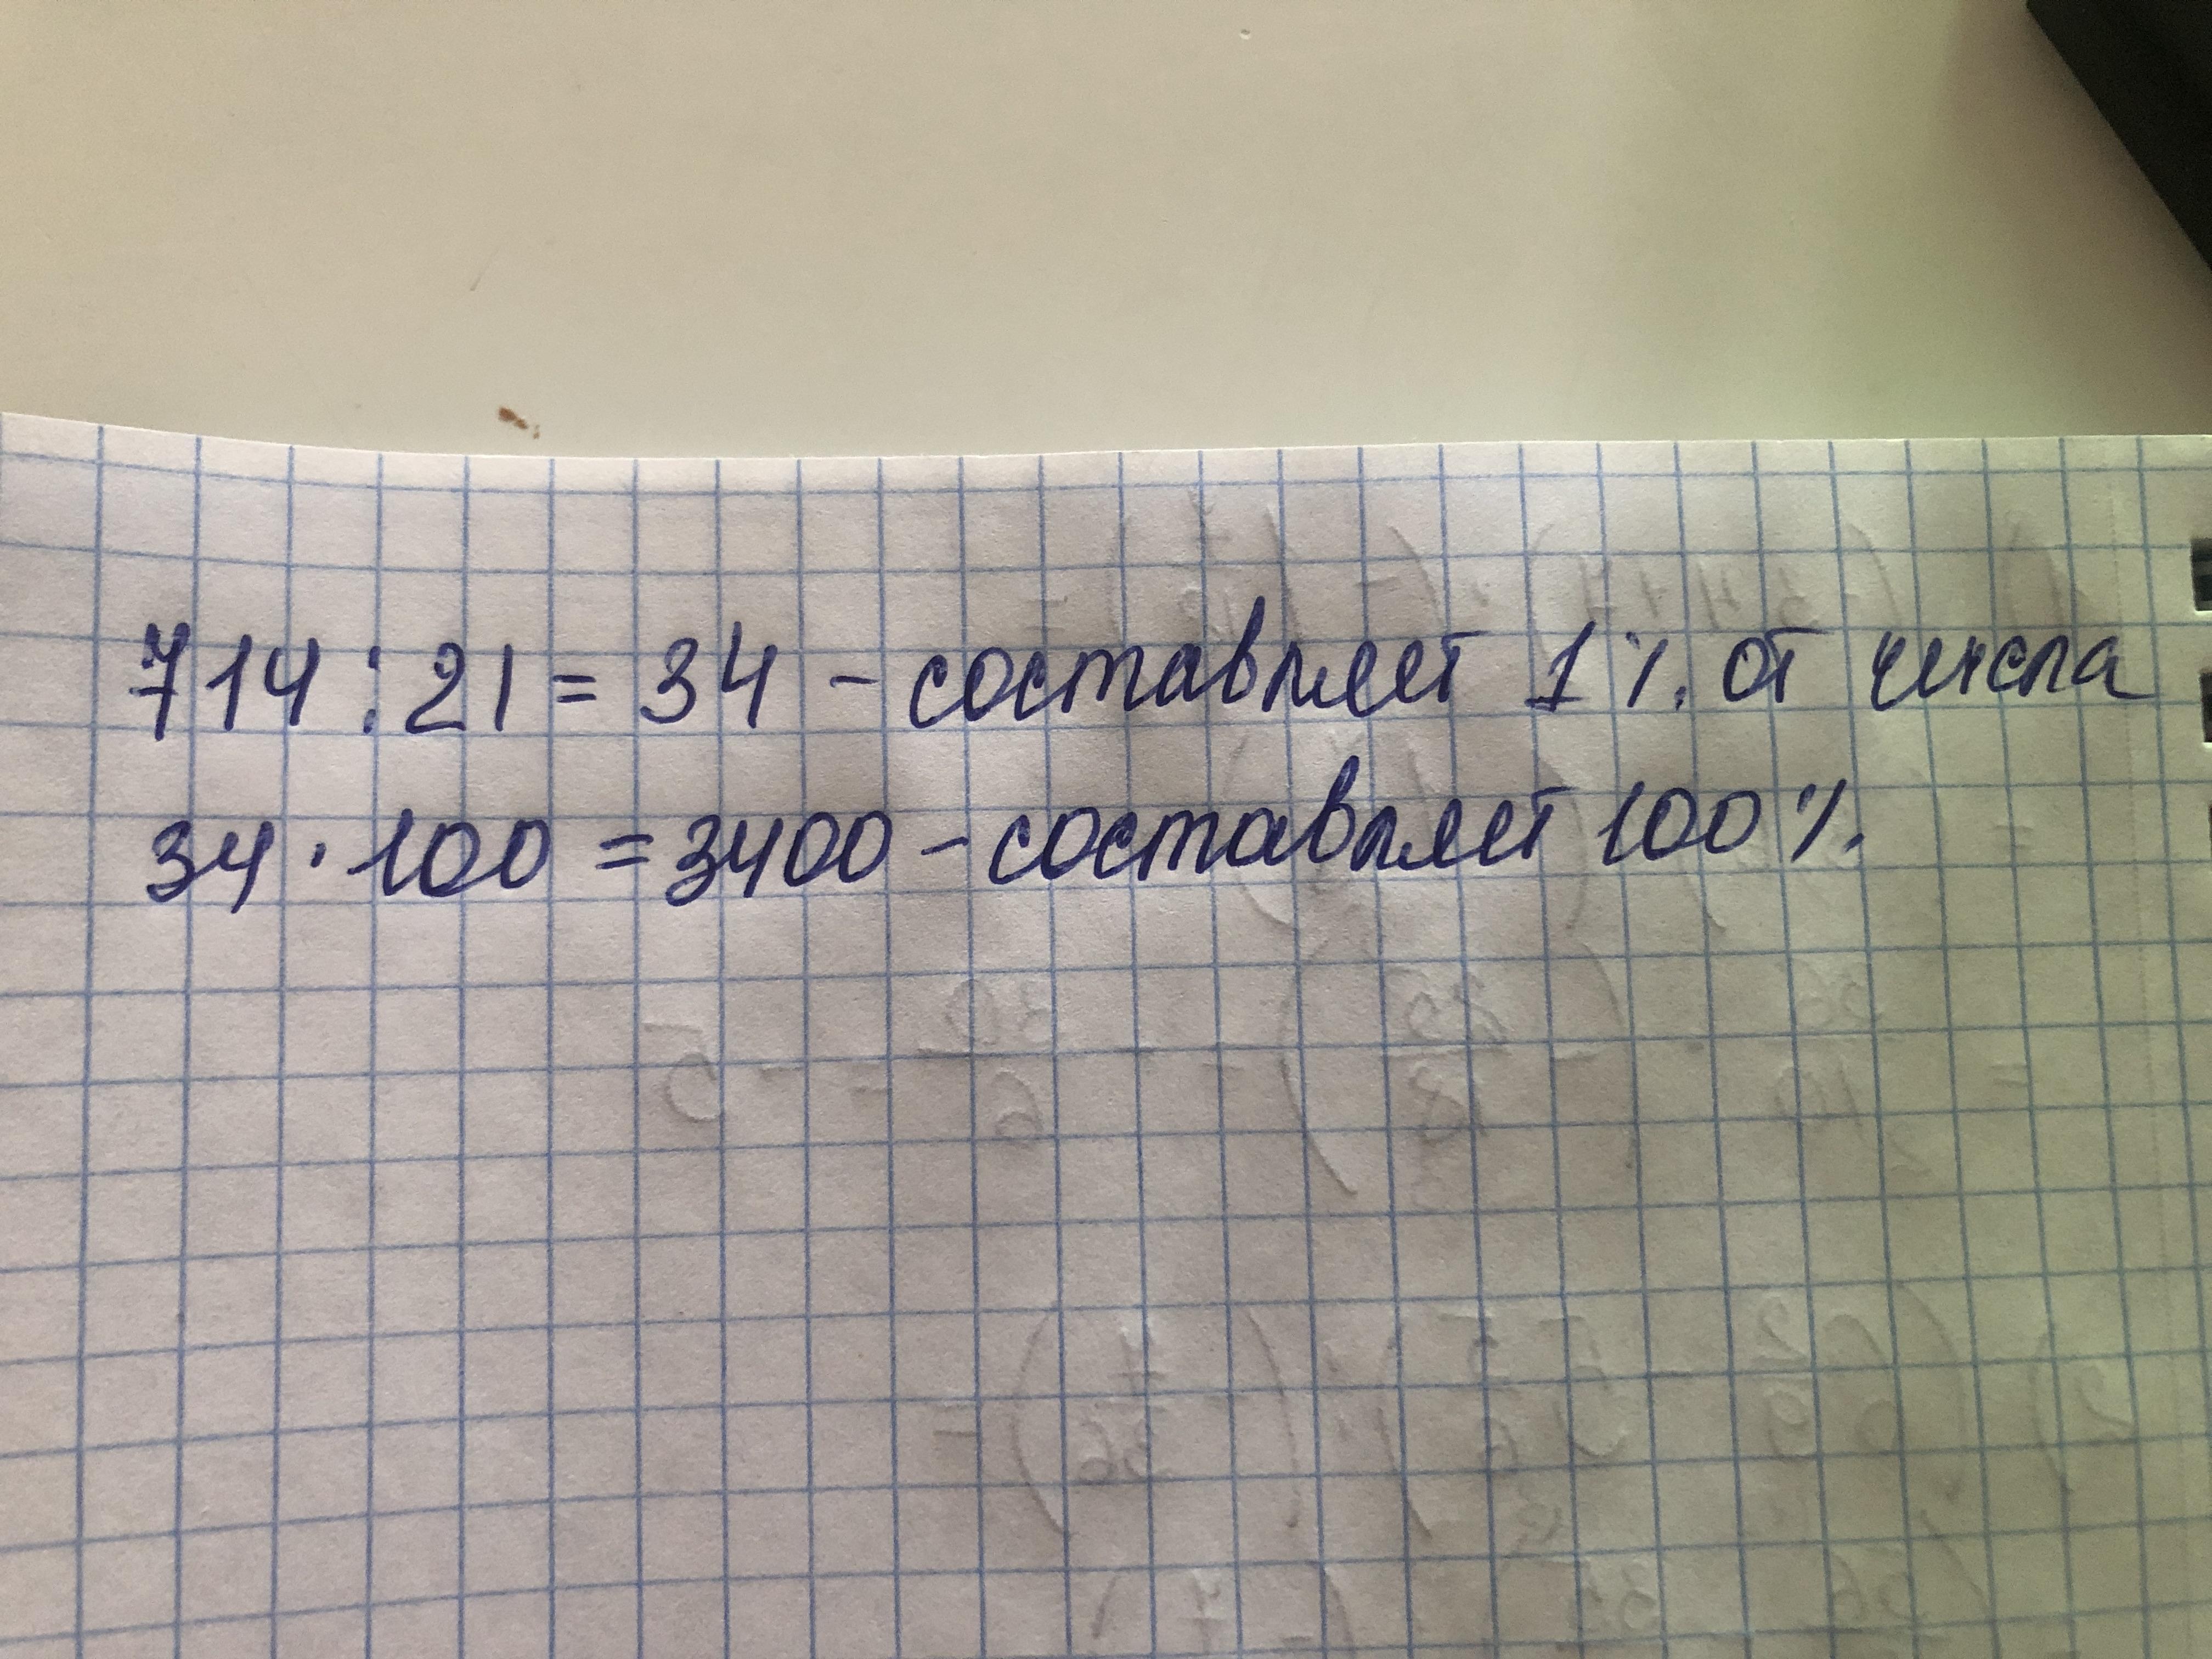 714 : 21 = 34 - составляет 1% от числа
34 · 100 = 3400 - составляет 100%.